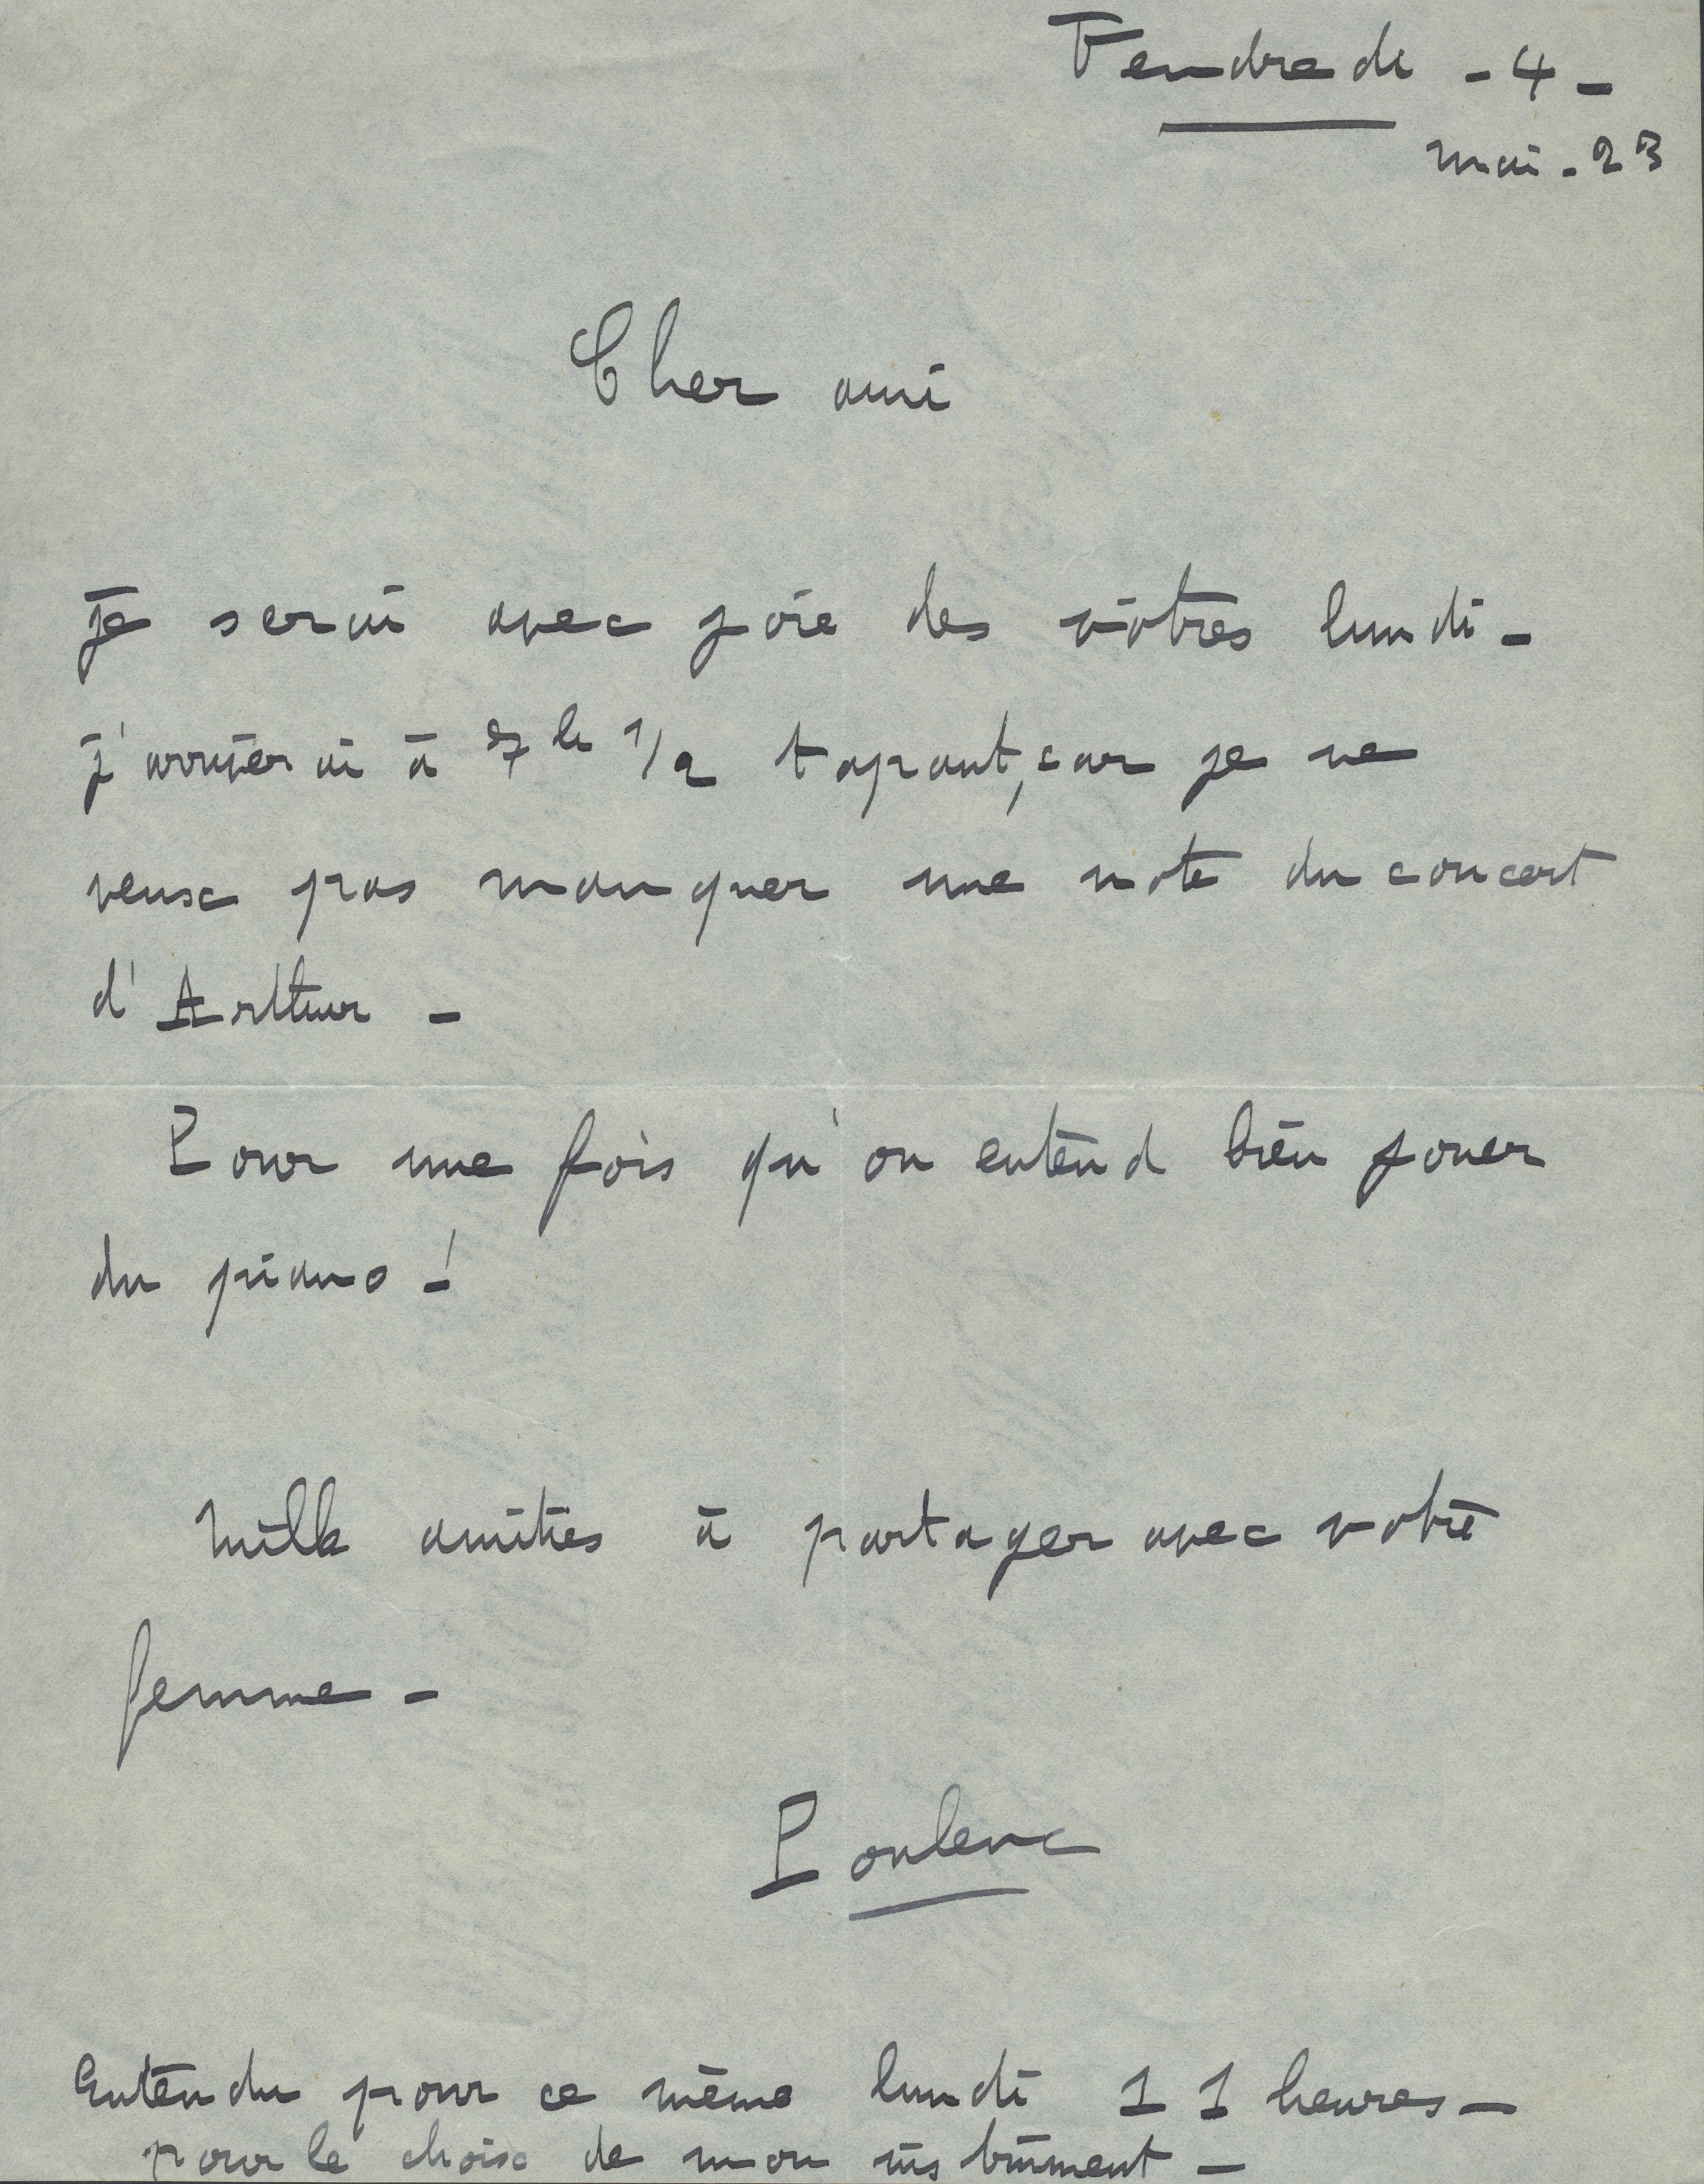 Vendredi - 4 -
mai - 23
Cher ami
Je serai avec joie des vôtres lundi -
j'arriverai à 7 h 1/2 tapant, car je ne
veux pas manquer une note du concert
d'Arthur -
Pour une fois qu'on entend bien jouer
du piano !
Mille amitiés à partager avec votre
femme -
Poulenc
Entendu pour ce même lundi 11 heures -
pour le choix de mon instrument -